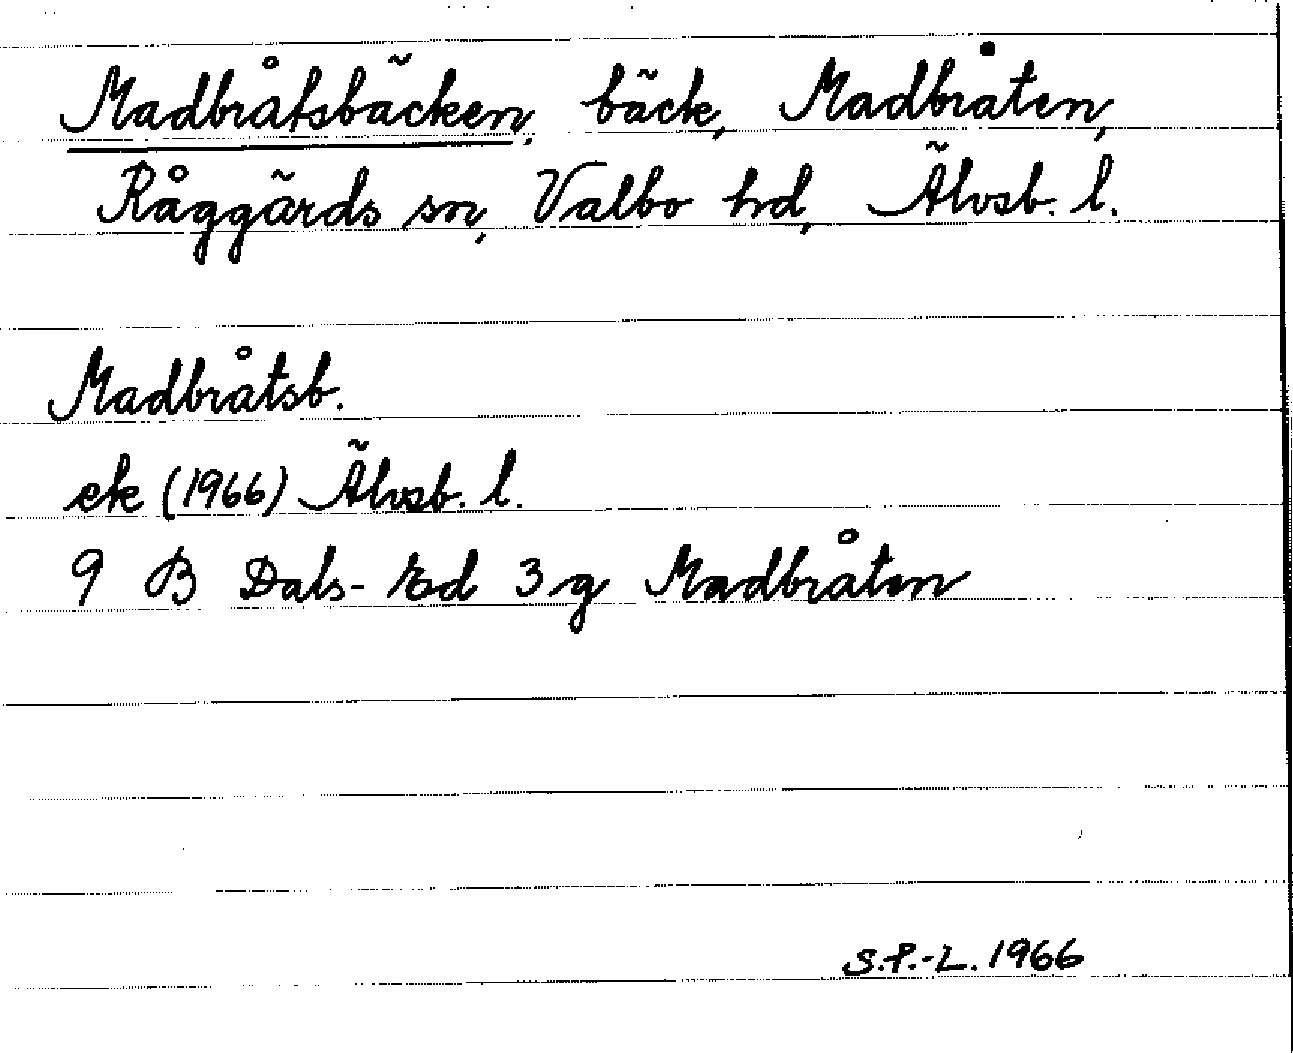 Madbråtsbäcken, bäck, Madbråten,
Råggärds sn, Valbo hd, Älvsb. l.
Madbråtsb.
ek (1966) Älvsb. l.
9 B Dals-Ed 3 g Madbråten
S.P.-L. 1966